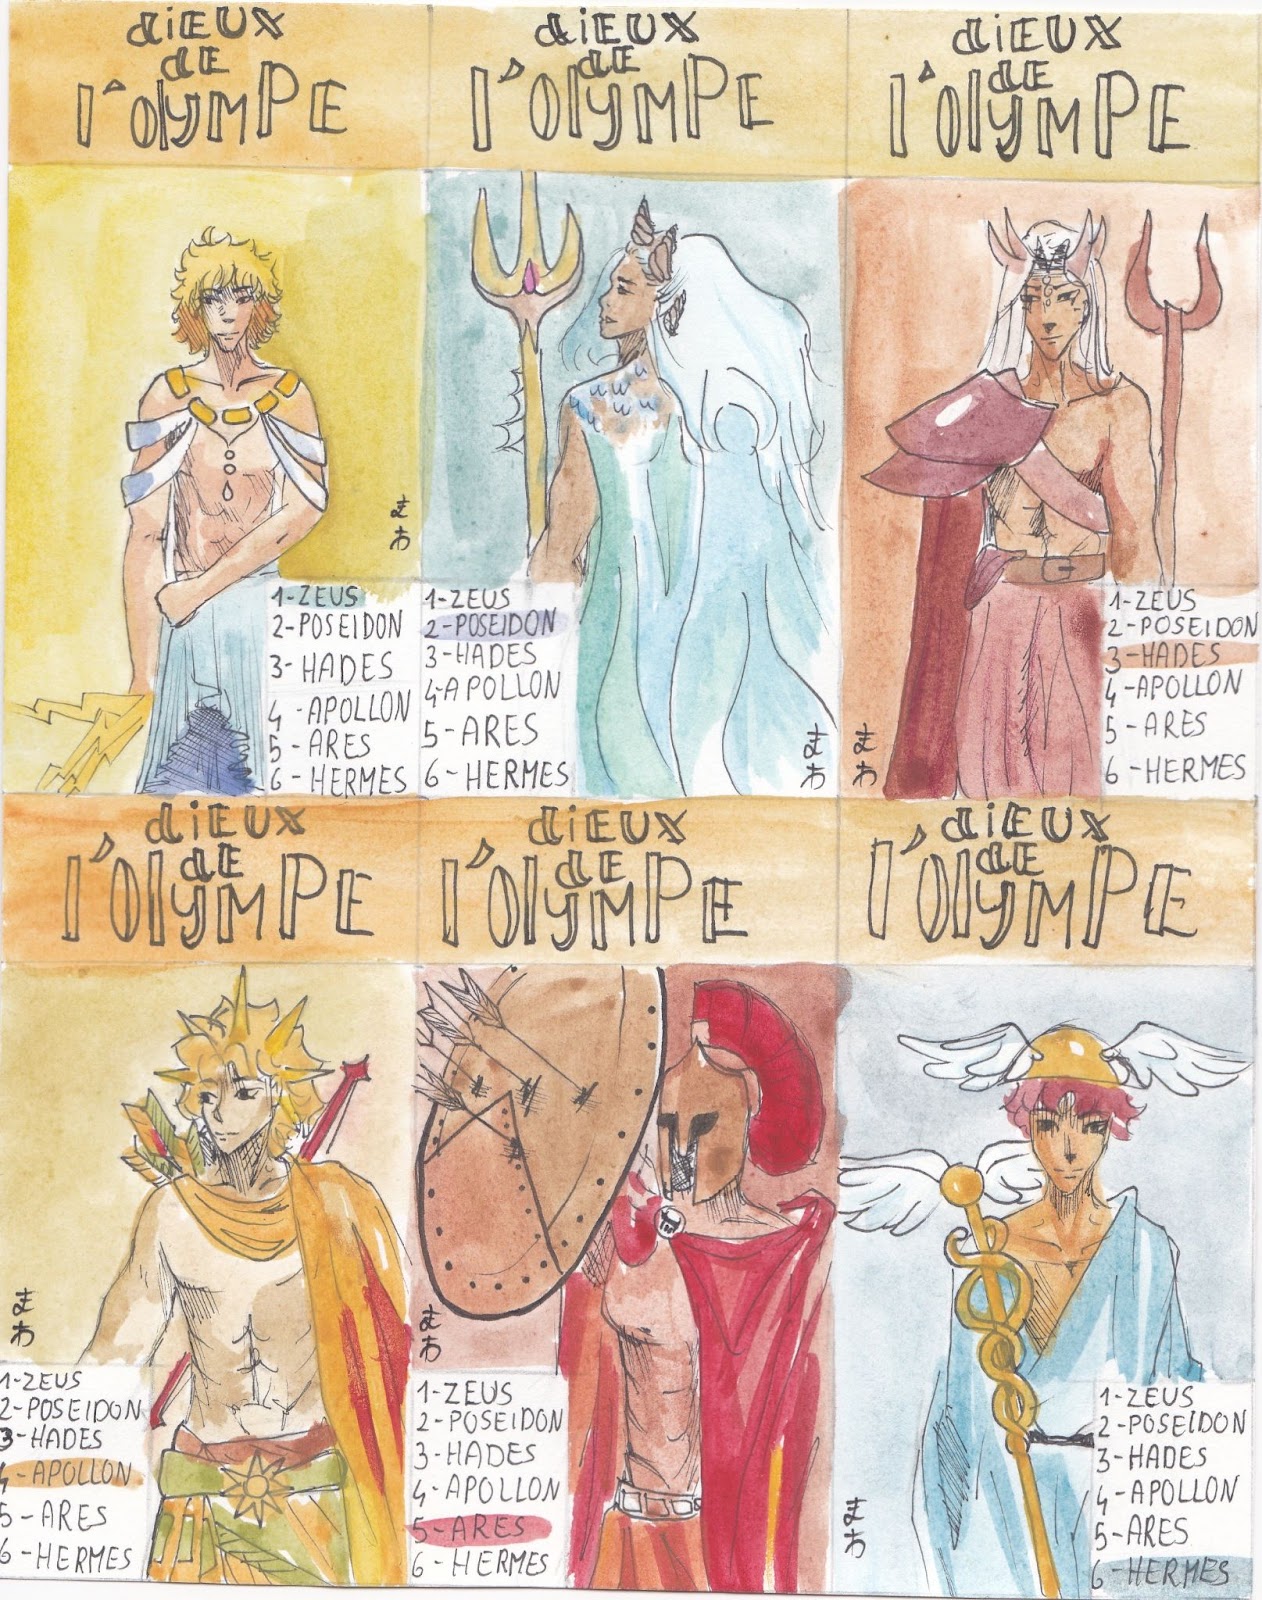 dieux
de
l'olympe
まわ
1-ZEUS
2-POSEIDON
3-HADES
4-APOLLON
5-ARES
6-HERMES
dieux
de
l'olympe
1-ZEUS
2-POSEIDON
3-HADES
4-APOLLON
5-ARES
6-HERMES
まわ
dieux
de
l'olympe
1-ZEUS
2-POSEIDON
3-HADES
4-APOLLON
5-ARES
6-HERMES
まわ
dieux
de
l'olympe
まわ
1-ZEUS
2-POSEIDON
3-HADES
4-APOLLON
5-ARES
6-HERMES
dieux
de
l'olympe
まわ
1-ZEUS
2-POSEIDON
3-HADES
4-APOLLON
5-ARES
6-HERMES
dieux
de
l'olympe
1-ZEUS
2-POSEIDON
3-HADES
4-APOLLON
5-ARES
6-HERMES
まわ